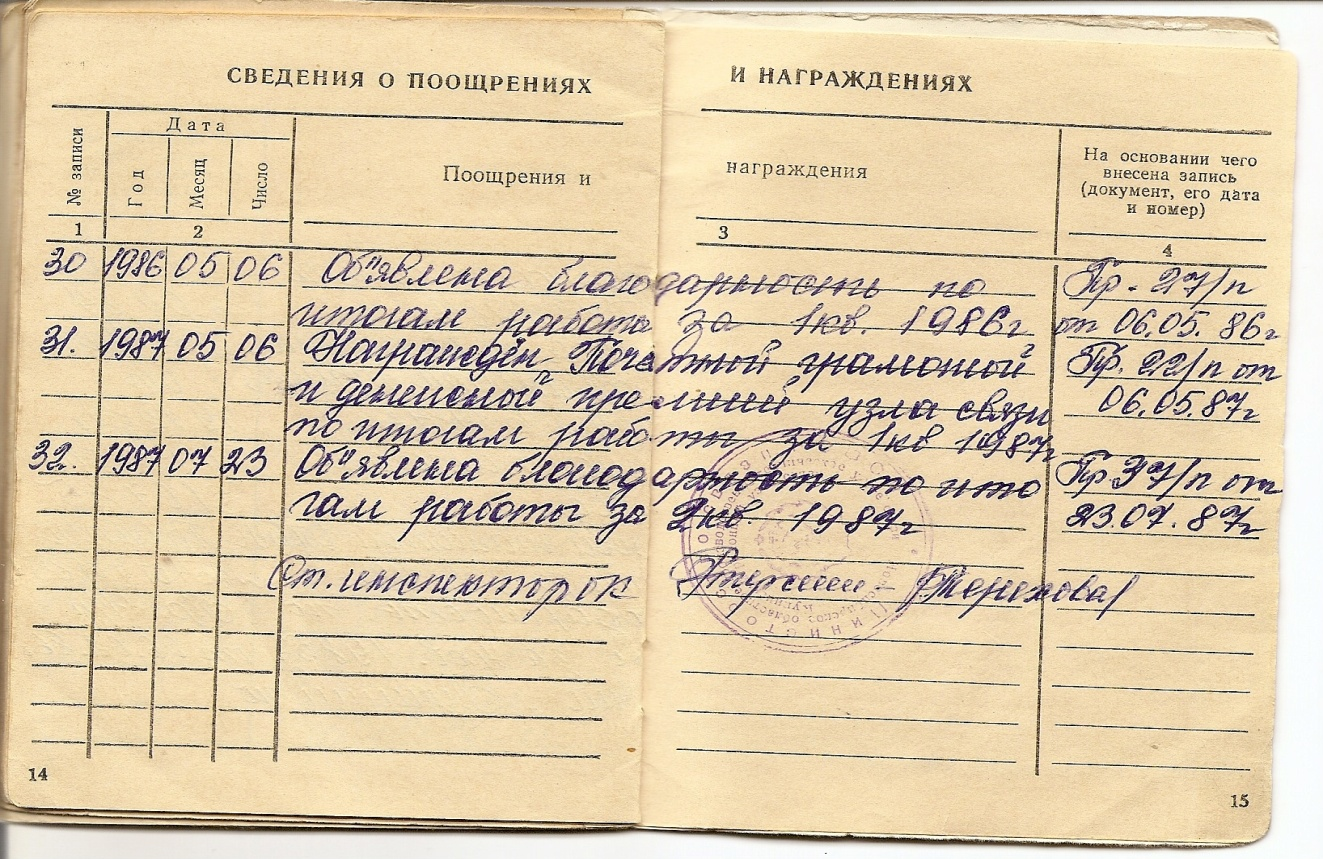 СВЕДЕНИЯ О ПООЩРЕНИЯХ И НАГРАЖДЕНИЯХ
№ записи
Дата
Год
Месяц
Число
Поощрения и награждения
На основании чего
внесена запись
(документ, его дата
и номер)
1 2 3 4
30 1986 05 06 Об"явлена благодарность по Пр. 27/п
итогам работы за 1 кв. 1986 г от 06.05. 86 г
31. 1987 05 06 Награждён Почетной грамотой Пр. 22/п от
и денежной премией узла связи 06.05.87 г
по итогам работы за 1 кв 1987 г
32. 1987 07 23 Об"явлена благодарность по ито Пр 37/п от
гам работы за 2 кв. 1987 г 23.07. 87 г
Ст. инспектор ОК /Терехова/
14
15